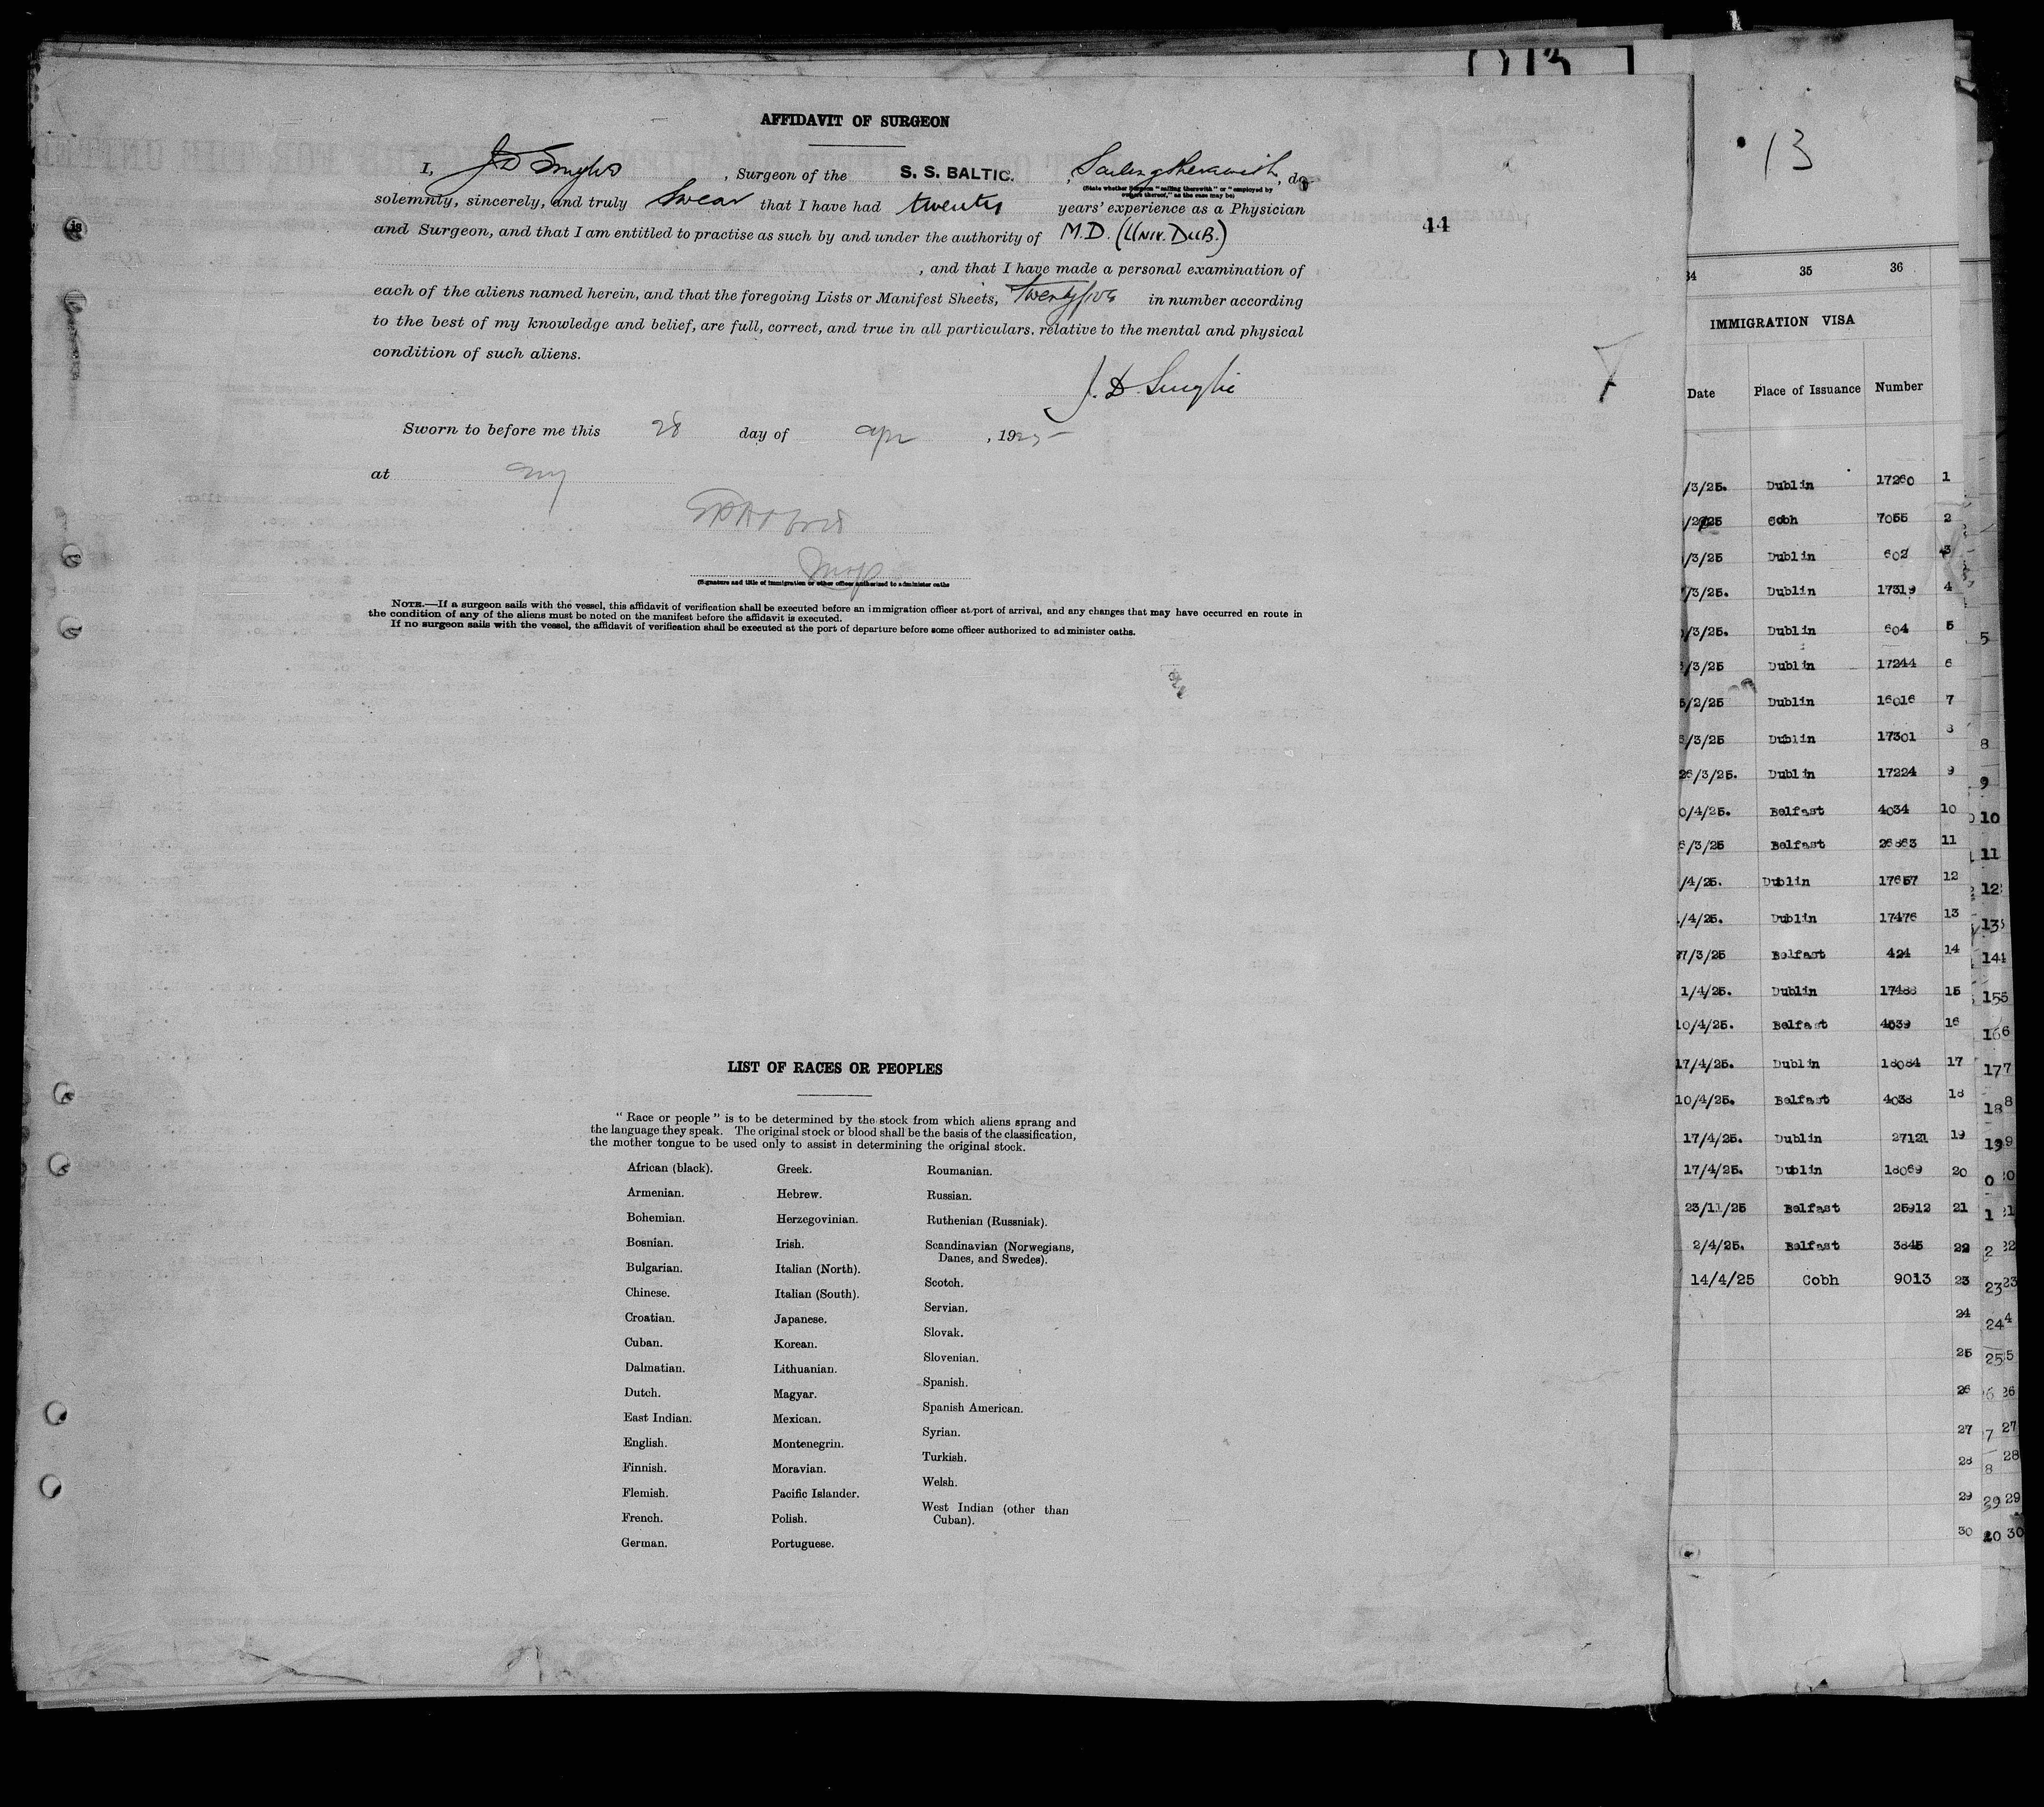 AFFIDAVIT OF SURGEON
I, J D , Surgeon of the S. S. BALTIC. , Sailing therewith , do
(State whether Surgeon "sailing therewith" or "employed by
owners thereof," as the case may be)
solemnly, sincerely, and truly Swear that I have had twenty years' experience as a Physician
and Surgeon, and that I am entitled to practise as such by and under the authority of M.D. (UNIV. DUB.)
, and that I have made a personal examination of
each of the aliens named herein, and that the foregoing Lists or Manifest Sheets, in number according
to the best of my knowledge and belief, are full, correct, and true in all particulars. relative to the mental and physical
condition of such aliens.
J. D.
Sworn to before me this 28 day of apr , 1925
at
(Signature and title of immigration or other officer authorized to administer oaths
NOTE.—If a surgeon sails with the vessel, this affidavit of verification shall be executed before an immigration officer at port of arrival, and any changes that may have occurred en route in
the condition of any of the aliens must be noted on the manifest before the affidavit is executed.
If no surgeon sails with the vessel, the affidavit of verification shall be executed at the port of departure before some officer authorized to administer oaths.
44
LIST OF RACES OR PEOPLES
"Race or people" is to be determined by the stock from which aliens sprang and
the language they speak. The original stock or blood shall be the basis of the classification,
the mother tongue to be used only to assist in determining the original stock.
African (black).
Armenian.
Bohemian.
Bosnian.
Bulgarian.
Chinese.
Croatian.
Cuban.
Dalmatian.
Dutch.
East Indian.
English.
Finnish.
Flemish.
French.
German.
Greek.
Hebrew.
Herzegovinian.
Irish.
Italian (North).
Italian (South).
Japanese.
Korean.
Lithuanian.
Magyar.
Mexican.
Montenegrin.
Moravian.
Pacific Islander.
Polish.
Portuguese.
Roumanian.
Russian.
Ruthenian (Russniak).
Scandinavian (Norwegians,
Danes, and Swedes).
Scotch.
Servian.
Slovak.
Slovenian.
Spanish.
Spanish American.
Syrian.
Turkish.
Welsh.
West Indian (other than
Cuban).
13
34 35 36
IMMIGRATION VISA
Date Place of Issuance Number
/3/25. Dublin 17260 1
Cobh 7055 2
/3/25 Dublin 602 3
/3/25. Dublin 17319 4
/3/25. Dublin 604 5
/3/25 Dublin 17244 6
5/2/25 Dublin 16016 7
/3/25 Dublin 17301 8
26/3/25. Dublin 17224 9
0/4/25. Belfast 4034 10
6/3/25 Belfast 26863 11
/4/25. Dublin 17657 12
/4/25. Dublin 17476 13
27/3/25 Belfast 424 14
1/4/25. Dublin 17488 15
10/4/25. Belfast 4039 16
17/4/25. Dublin 18084 17
10/4/25. Belfast 4038 18
17/4/25. Dublin 27121 19
17/4/25. Dublin 18069 20
23/11/25 Belfast 25912 21
2/4/25. Belfast 3845 22
14/4/25 Cobh 9013 23
24
25
26
27
28
29
30